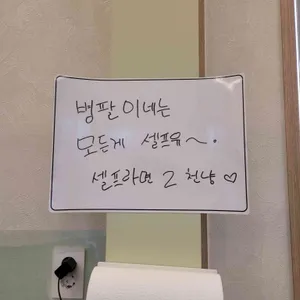 뱅팔이네는
모든게 셀프유~.
셀프라면 2 천냥 ♡